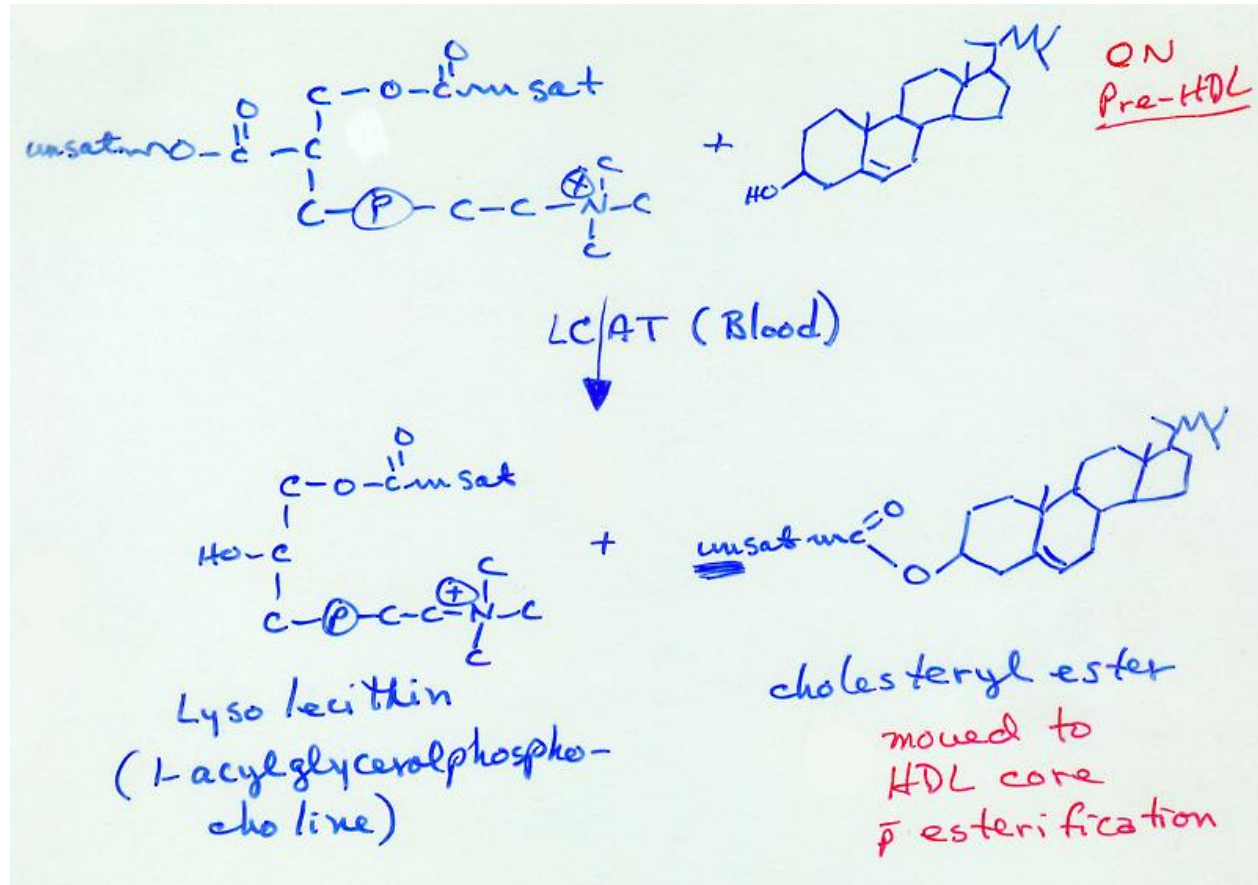 O
C-O-C sat
O
unsat O-C-C
C-P-C-C-N-C
⊕ C
C
+
HO
ON
Pre-HDL
LCAT (Blood)
O
C-O-C sat
HO-C
C-P-C-C-N-C
⊕ C
C
+
unsat C=O
O
Lyso lecithin
(1-acylglycerolphospho-
choline)
cholesteryl ester
moved to
HDL core
p̄ esterification